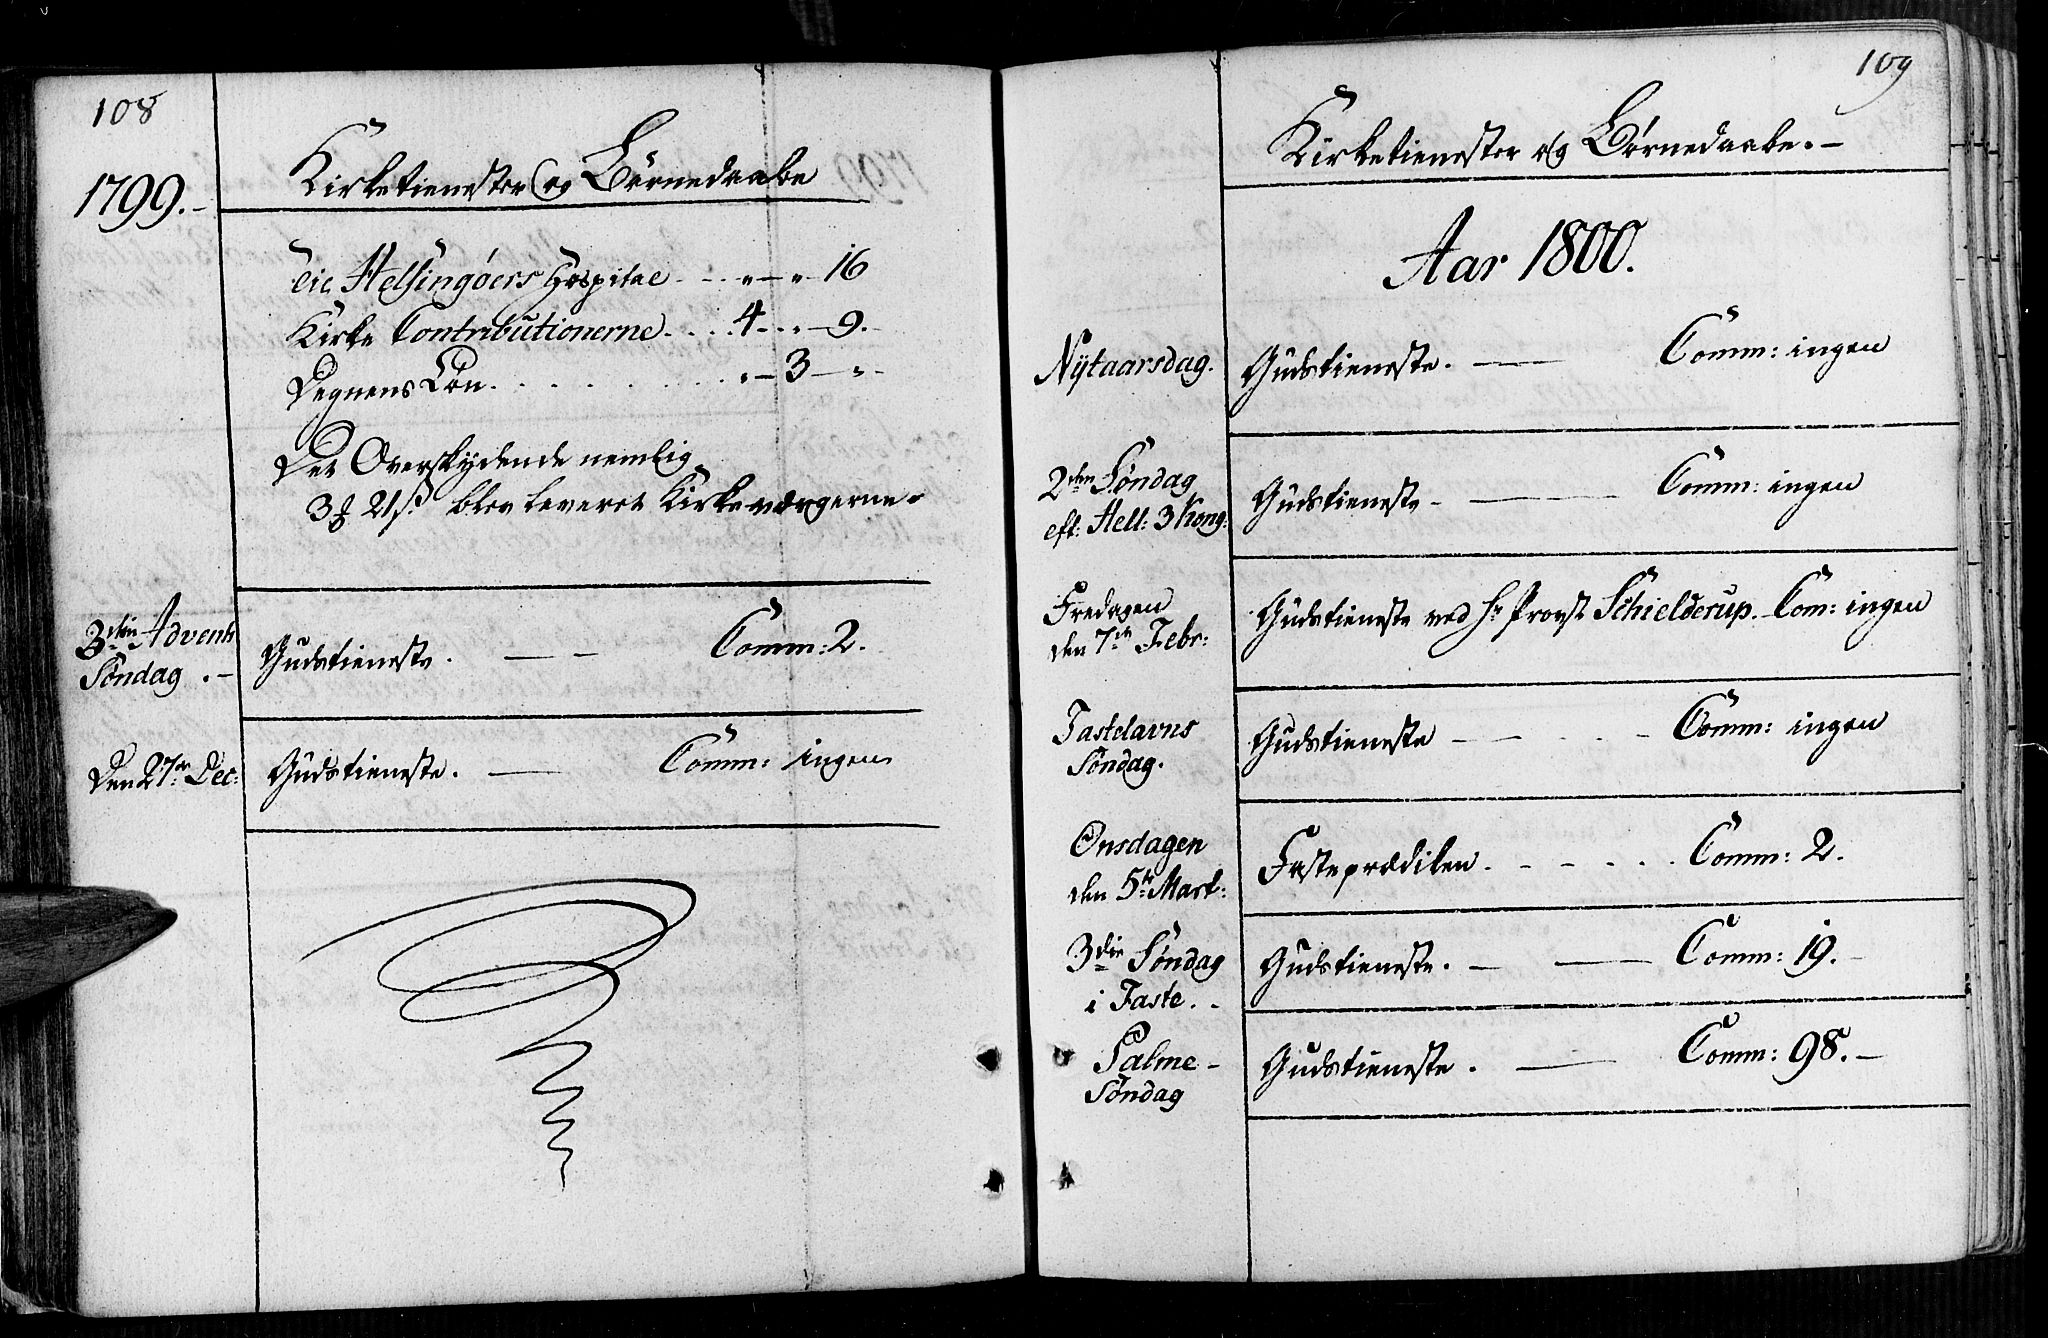 108
1799.-
Kirketienester og Börnedaabe
Til Helsingøers Hospital - - - „ - „ - 16
Kirke Contributionerne . . . . 4 - „ - 9.
Degnens Løn. . . . . . . . . . „ - 3 - „ -
Det Overskydende nemlig
3 21 ß. blev leveret Kirkeværgerne.
3die Advent
Søndag . -
Gudstieneste. — - Comm: 2.
Den 27de Dec:
Gudstieneste. — Comm: ingen
109
Kirketienester og Börnedaabe. -
Aar 1800.
Nÿtaarsdag.
Gudstieneste. — Comm: ingen
2den Søndag
eft: Hell: 3 Kong:
Gudstieneste - — Comm: ingen
Fredagen
den 7de Febr:
Gudstieneste ved Hr Provst Schielderup. Com: ingen
Fastelavns
Søndag.
Gudstieneste - - - - - Comm: ingen
Onsdagen
den 5te Mart:
Fasteprædiken. - - - . . . Comm: 2.
3die Søndag
i Faste. -
Gudstieneste. - — Comm: 19. -
Palme-
Søndag
Gudstieneste . — Comm: 98. -